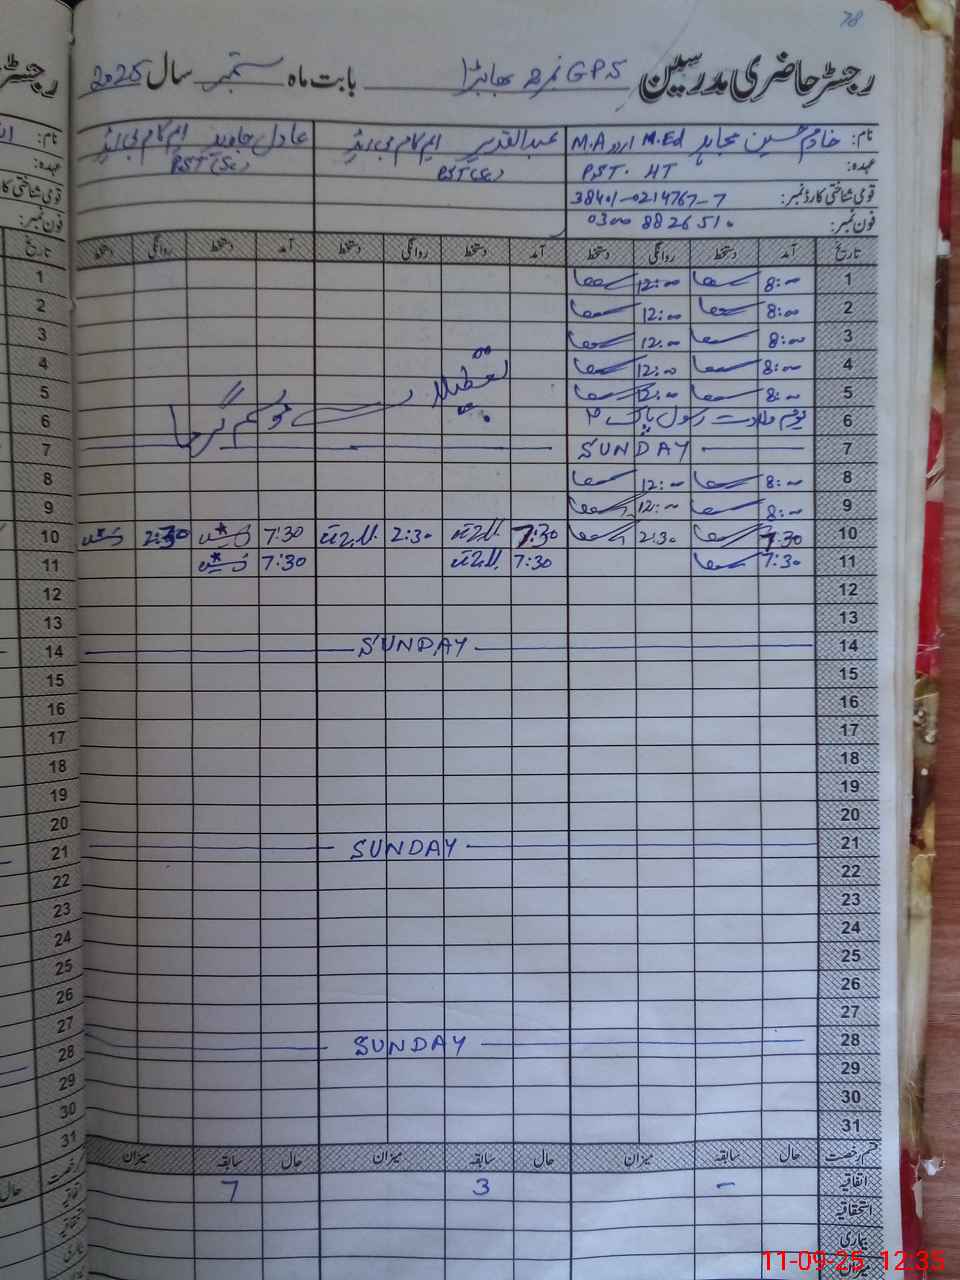 78
رجسٹر حاضری مدرسین GPS نمبر 2 بھابڑا بابت ماہ ستمبر سال 2025
نام: خادم حسین مجاہد M.A اردو M.Ed عبدالقدیر ایم کام بی ایڈ عادل جاوید ایم کام بی ایڈ
عہدہ: PST. HT PST(Sc) PST(Sc)
قومی شناختی کارڈ نمبر: 38401-0214767-7
فون نمبر: 0300 8826510
تاریخ آمد دستخط روانگی دستخط آمد دستخط روانگی دستخط آمد دستخط روانگی دستخط
1 8:00 12:00
2 8:00 12:00
3 8:00 12:00
4 8:00 12:00
5 8:00 12:00
تعطیلات موسم گرما
6 یوم ولادت رسول پاک
7 SUNDAY
8 8:00 12:00
9 8:00 12:00
10 7:30 2:30 7:30 2:30 7:30 2:30
11 7:30 7:30 7:30
12
13
14 SUNDAY
15
16
17
18
19
20
21 SUNDAY
22
23
24
25
26
27
28 SUNDAY
29
30
31
قسم رخصت حال سابقہ میزان حال سابقہ میزان حال سابقہ میزان
اتفاقیہ - 3 7
استحقاقیہ
بیماری
میزان
11-09-25 12:35